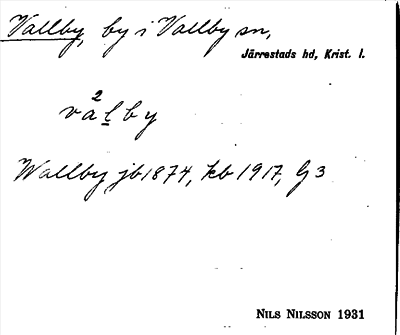 Vallby, by i Vallby sn,
Järrestads hd, Krist. l.
va²lby
Wallby jb 1874, kb 1917, G 3
NILS NILSSON 1931